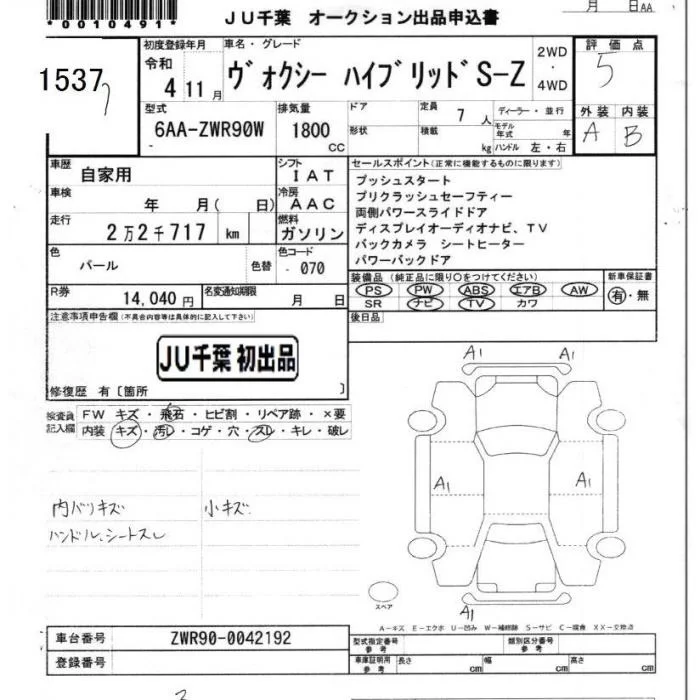 *0010491*
JU千葉 オークション出品申込書
月 日AA
1537
初度登録年月
令和
4 11月
車名・グレード
ヴォクシー ハイブリッドS-Z
2WD
・
4WD
評価点
5
型式
6AA-ZWR90W
排気量
1800
CC
ドア
形状
定員 7 人
積載 kg
ディーラー・並行
モデル年式 年
ハンドル 左・右
外装 内装
A B
車歴 自家用
シフト IAT
車検 年 月( 日)
冷房 AAC
走行 2万2千717 km
燃料 ガソリン
色 パール 色替
色コード - 070
R券 14,040円
名変通知期限 月 日
セールスポイント(正常に機能するものに限ります)
プッシュスタート
プリクラッシュセーフティー
両側パワースライドドア
ディスプレイオーディオナビ、TV
バックカメラ シートヒーター
パワーバックドア
装備品 (純正品に限り○をつけてください)
PS PW ABS エアB AW
SR ナビ TV カワ
新車保証書
有・無
後日品
注意事項申告欄(不具合内容等は具体的に記入して下さい)
JU千葉 初出品
修復歴 有〔箇所 〕
検査員記入欄
FW キズ・飛石・ヒビ割・リペア跡・×要
内装 キズ・汚レ・コゲ・穴・スレ・キレ・破レ
内バリキズ 小キズ
ハンドル、シートスレ
A1 A1
A1 A1
A1
スペア
A-キズ E-エクボ U-凹み W-補修跡 S-サビ C-腐食 XX-交換済
車台番号 ZWR90-0042192
登録番号
型式指定番号参考
類別区分番号参考
車庫証明用参考 長さ cm 幅 cm 高さ cm